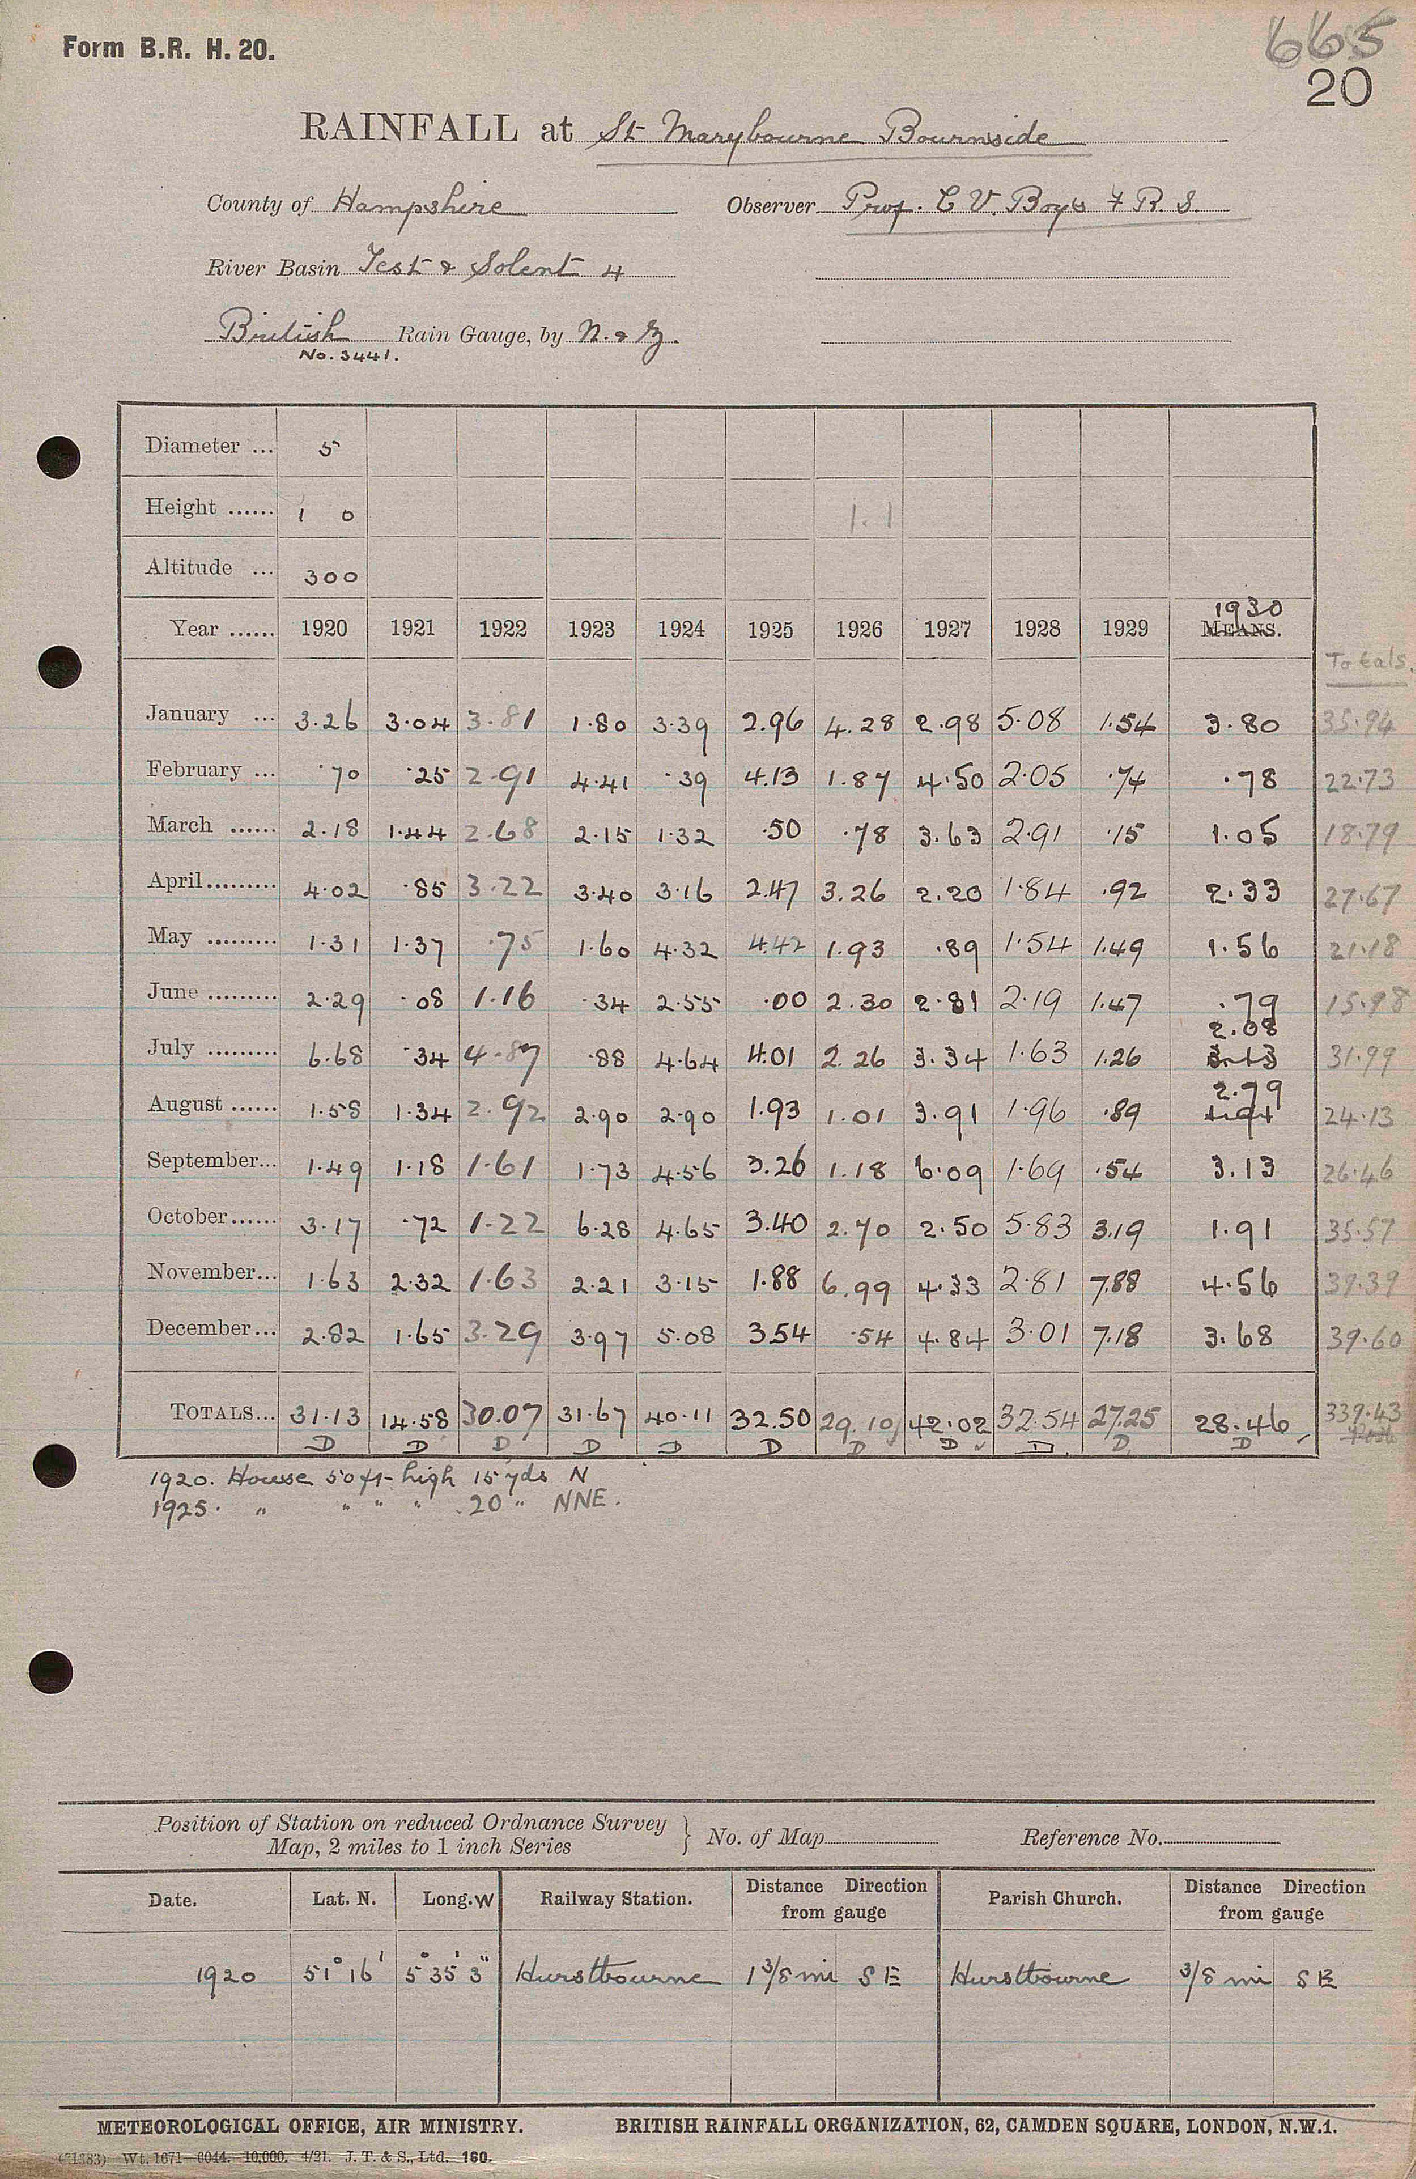 Form B.R. H. 20.
665
20
RAINFALL at St Marybourne Bournside
County of Hampshire Observer Prof. C V. Boys F R. S.
River Basin Test & Solent 4
British Rain Gauge, by N. & Z.
No. 3441.
Diameter ... 5
Height ...... 1 0 1.1
Altitude ... 300
1930
Year ...... 1920 1921 1922 1923 1924 1925 1926 1927 1928 1929 MEANS.
Totals.
January ... 3.26 3.04 3.81 1.80 3.39 2.96 4.28 2.98 5.08 1.54 3.80 35.94
February ... .70 .25 2.91 4.41 .39 4.13 1.87 4.50 2.05 .74 .78 22.73
March ...... 2.18 1.44 2.68 2.15 1.32 .50 .78 3.63 2.91 .15 1.05 18.79
April......... 4.02 .85 3.22 3.40 3.16 2.47 3.26 2.20 1.84 .92 2.33 27.67
May ......... 1.31 1.37 .75 1.60 4.32 4.42 1.93 .89 1.54 1.49 1.56 21.18
June ......... 2.29 .08 1.16 .34 2.55 .00 2.30 2.81 2.19 1.47 .79 15.98
2.08
July ......... 6.68 .34 4.87 .88 4.64 4.01 2.26 3.34 1.63 1.26 3.13 31.99
2.79
August ...... 1.58 1.34 2.92 2.90 2.90 1.93 1.01 3.91 1.96 .89 24.13
September... 1.49 1.18 1.61 1.73 4.56 3.26 1.18 6.09 1.69 .54 3.13 26.46
October...... 3.17 .72 1.22 6.28 4.65 3.40 2.70 2.50 5.83 3.19 1.91 35.57
November... 1.63 2.32 1.63 2.21 3.15 1.88 6.99 4.33 2.81 7.88 4.56 39.39
December... 2.82 1.65 3.29 3.97 5.08 3.54 .54 4.84 3.01 7.18 3.68 39.60
TOTALS... 31.13 14.58 30.07 31.67 40.11 32.50 29.10 42.02 32.54 27.25 28.46 339.43
D D D D D D D D D D D
1920. House 50 ft high 15 yds N
1925. " " " " 20 " NNE.
Position of Station on reduced Ordnance Survey
Map, 2 miles to 1 inch Series } No. of Map Reference No.
Date. Lat. N. Long. W Railway Station. Distance Direction from gauge Parish Church. Distance Direction from gauge
1920 51° 16' 5° 35' 3" Hurstbourne 1 3/8 mi S E Hurstbourne 3/8 mi S E
METEOROLOGICAL OFFICE, AIR MINISTRY. BRITISH RAINFALL ORGANIZATION, 62, CAMDEN SQUARE, LONDON, N.W.1.
Wt. 1671—6044. 10,000. 4/21. J. T. & S., Ltd. 160.